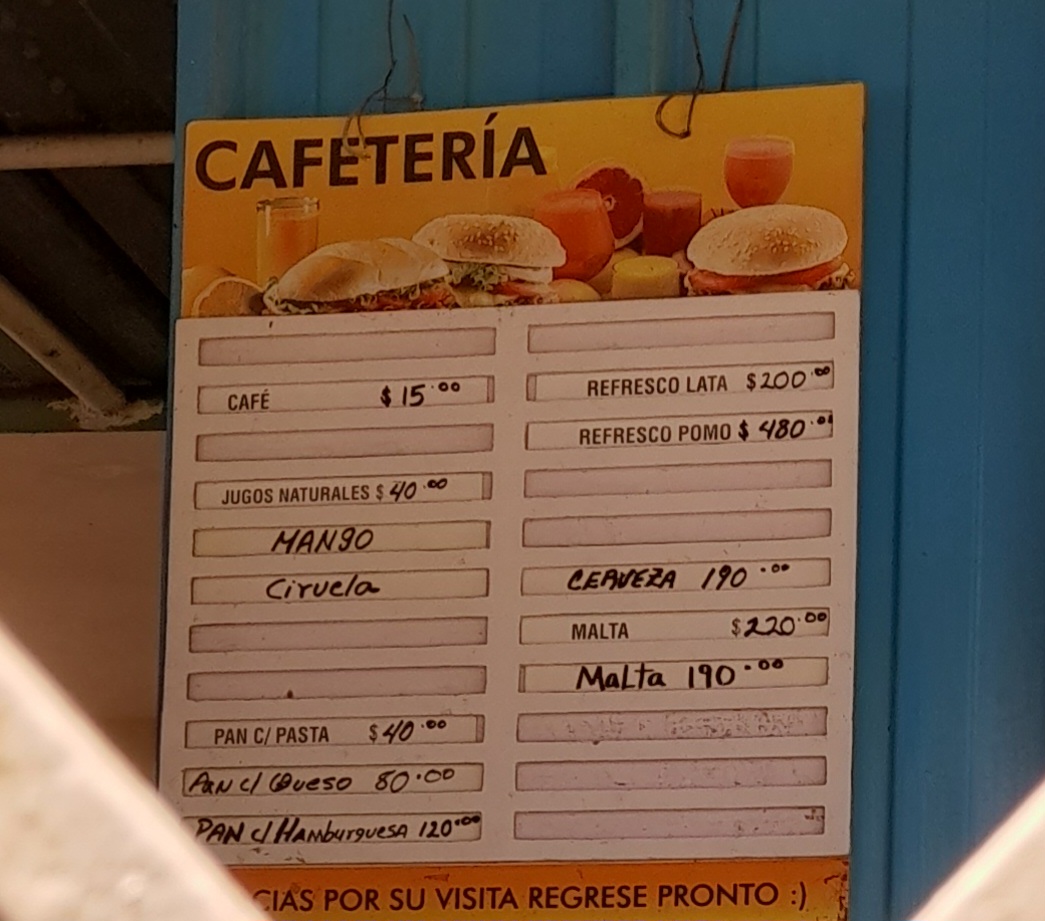 CAFETERÍA
CAFÉ $15.00
JUGOS NATURALES $40.00
MANGO
Ciruela
PAN C/ PASTA $40.00
PAN c/ Queso 80.00
PAN c/ HAmburguesA 120.00
REFRESCO LATA $200.00
REFRESCO POMO $480.00
CERVEZA 190.00
MALTA $220.00
MaLta 190.00
CIAS POR SU VISITA REGRESE PRONTO :)